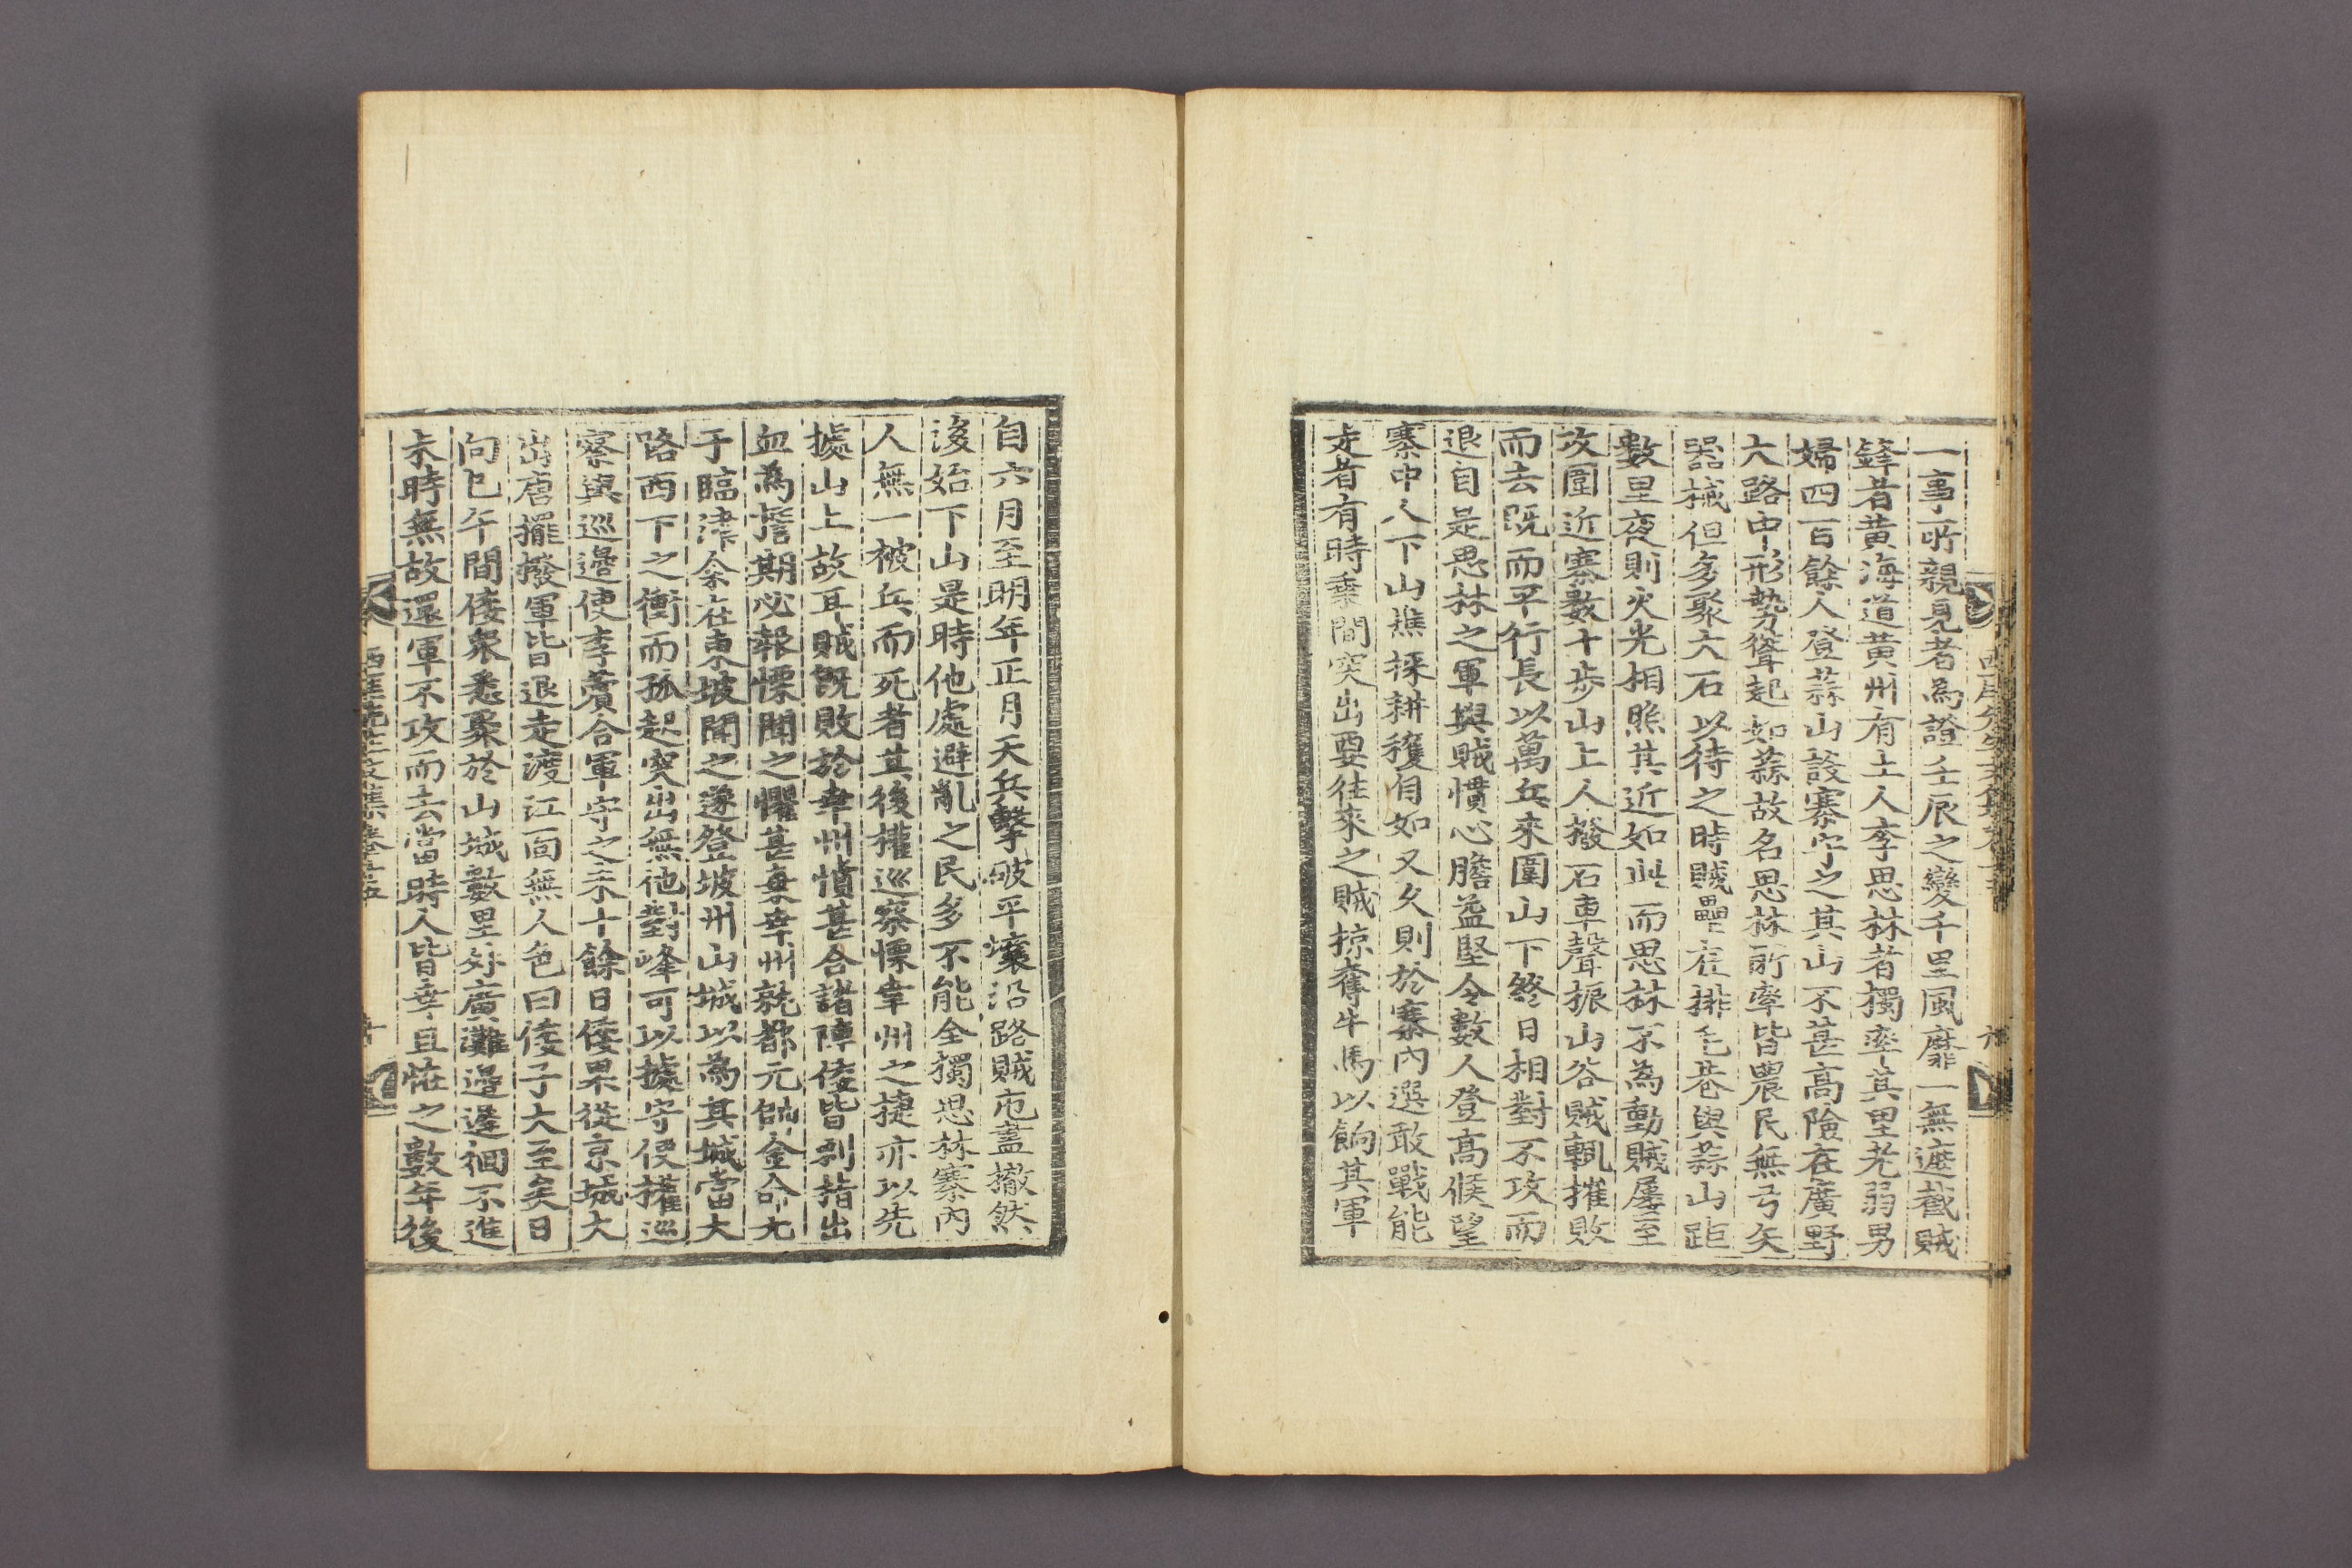 一事所親見者為證壬辰之變千里風靡一無遮截賊
鋒者黃海道黃州有士人李思林者獨率其里老弱男
婦四百餘人登蒜山設寨守之其山不甚高險在廣野
大路中形勢聳起如蒜故名思林所率皆農民無弓矢
器械但多聚大石以待之時賊壘在排毛巷與蒜山距
數里夜則火光相照其近如此而思林不為動賊屢至
攻圍近寨數十步山上人撥石車聲振山谷賊輒摧敗
而去既而平行長以萬兵來圍山下終日相對不攻而
退自是思林之軍與賊慣心膽益堅令數人登高候望
寨中人下山樵採耕穫自如又久則於寨內選敢戰能
走者有時乘間突出要往來之賊掠奪牛馬以餉其軍
自六月至明年正月天兵擊破平壤沿路賊屯蓋撤然
後始下山是時他處避亂之民多不能全獨思林寨內
人無一被兵而死者其後權巡察慄幸州之捷亦以先
據山上故耳賊既敗於幸州憤甚合諸陣倭皆刺指出
血為誓期必報慄聞之懼甚棄幸州就都元帥金命元
于臨津余在東坡聞之遂登坡州山城以為其城當大
路西下之衝而孤起突出無他對峰可以據守使權巡
察與巡邊使李薲合軍守之未十餘日倭果從京城大
出唐擺撥軍皆退走渡江面無人色曰倭子大至矣日
向巳午間倭眾悉聚於山城數里外廣灘邊邊徊不進
未時無故還軍不攻而去當時人皆幸且怪之數年後
西厓先生文集卷之十五